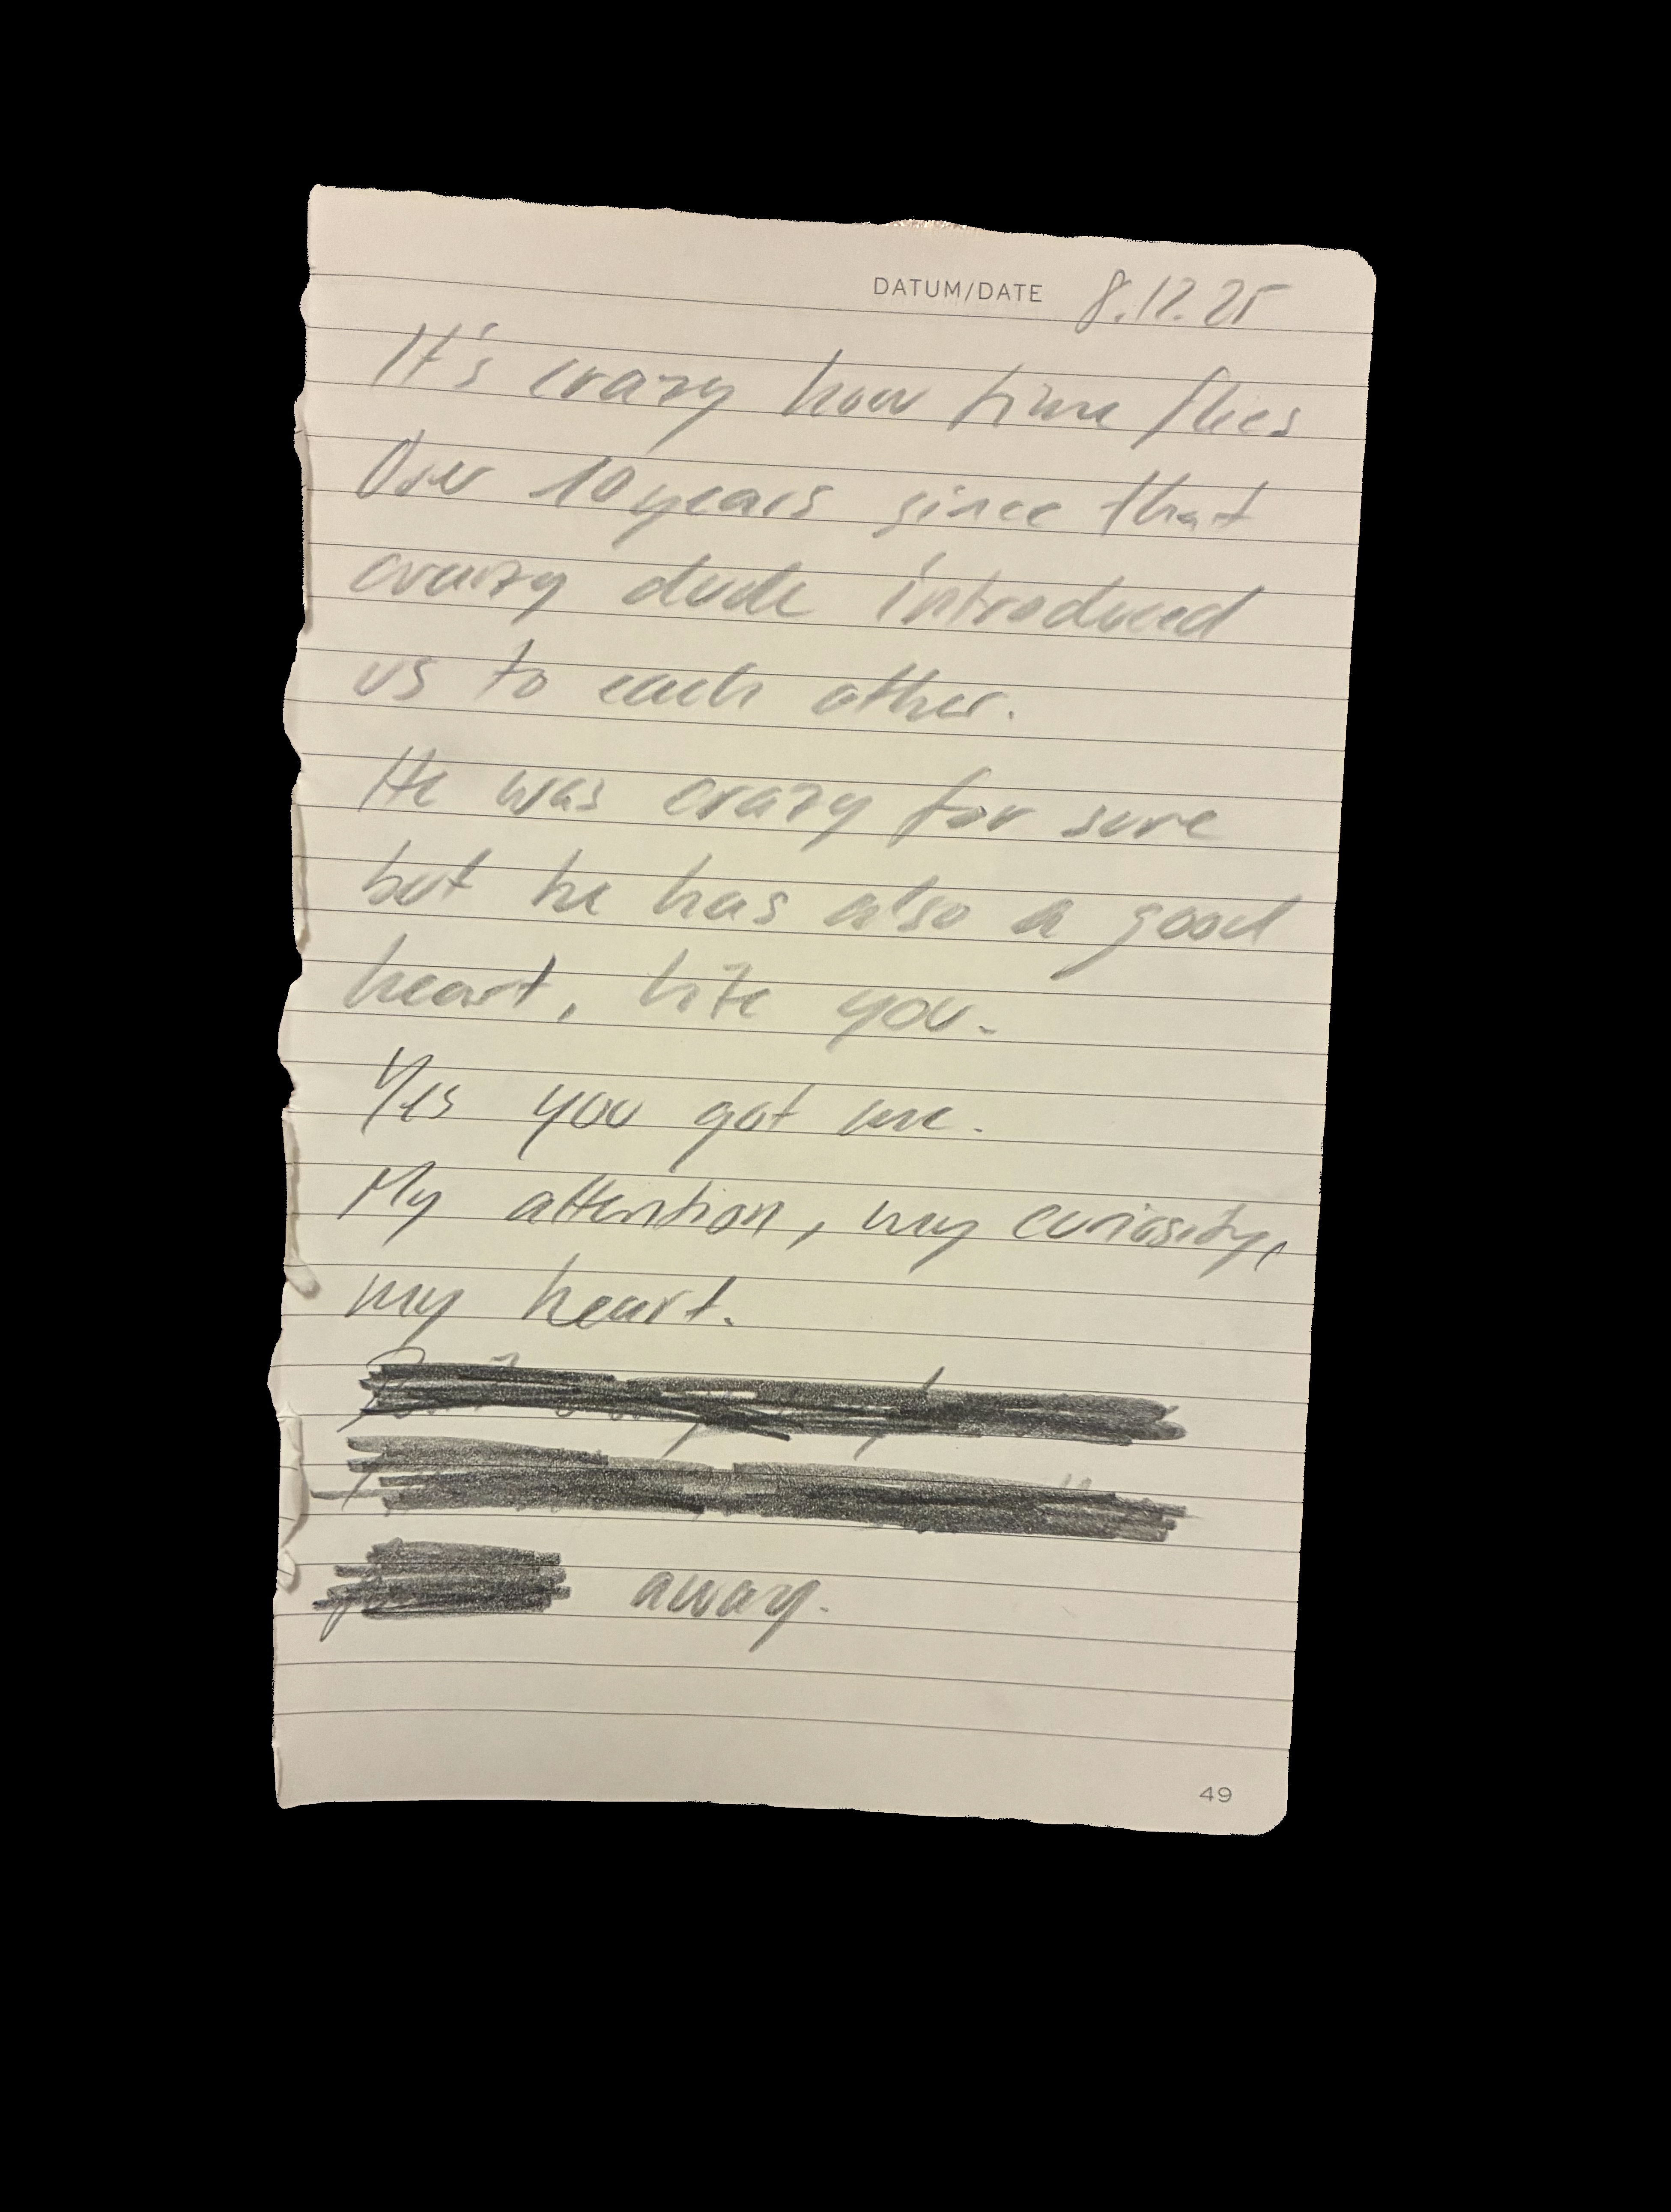 DATUM/DATE 8.12.25
It's crazy how time flies
Over 10 years since that
crazy dude introduced
us to each other.
He was crazy for sure
but he has also a good
heart, like you.
Yes you got me.
My attention, my curiosity,
my heart.
away.
49